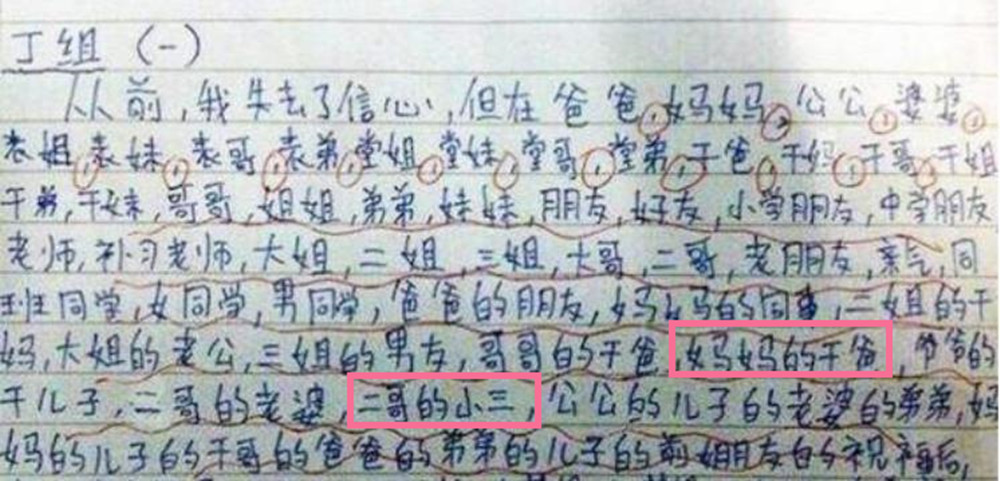 丁组（一）
从前,我失去了信心,但在爸爸,妈妈,公公,婆婆,
表姐,表妹,表哥,表弟,堂姐,堂妹,堂哥,堂弟,干爸,干妈,干哥,干姐
干弟,干妹,哥哥,姐姐,弟弟,妹妹,朋友,好友,小学朋友,中学朋友
老师,补习老师,大姐,二姐,三姐,大哥,二哥,老朋友,亲气,同
班同学,女同学,男同学,爸爸的朋友,妈妈的同事,二姐的干
妈,大姐的老公,三姐的男友,哥哥的干爸,妈妈的干爸,爷爷的
干儿子,二哥的老婆,二哥的小三,公公的儿子的老婆的弟弟,妈
妈的儿子的干哥的爸爸的弟弟的儿子的前朋友的祝福后,